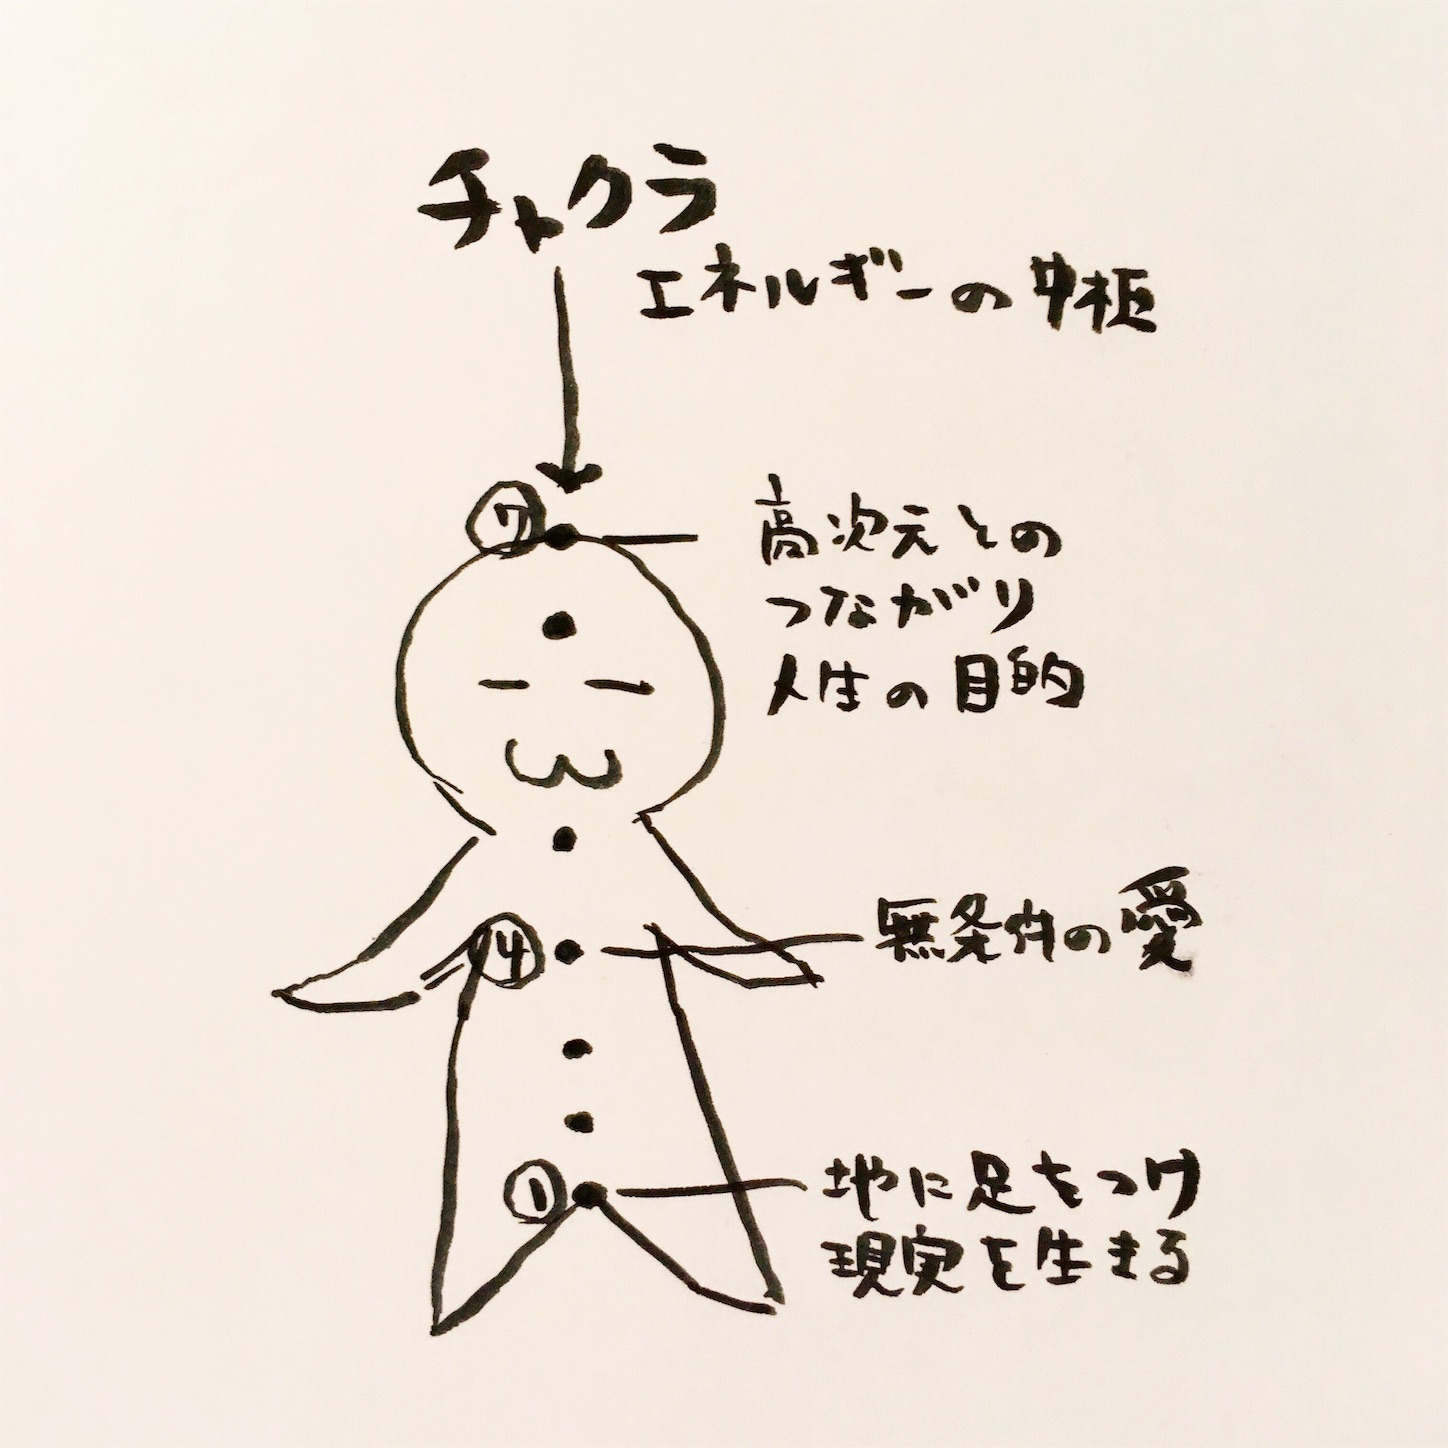 チャクラ
エネルギーの中枢
⑦
高次元との
つながり
人生の目的
④
無条件の愛
①
地に足をつけ
現実を生きる